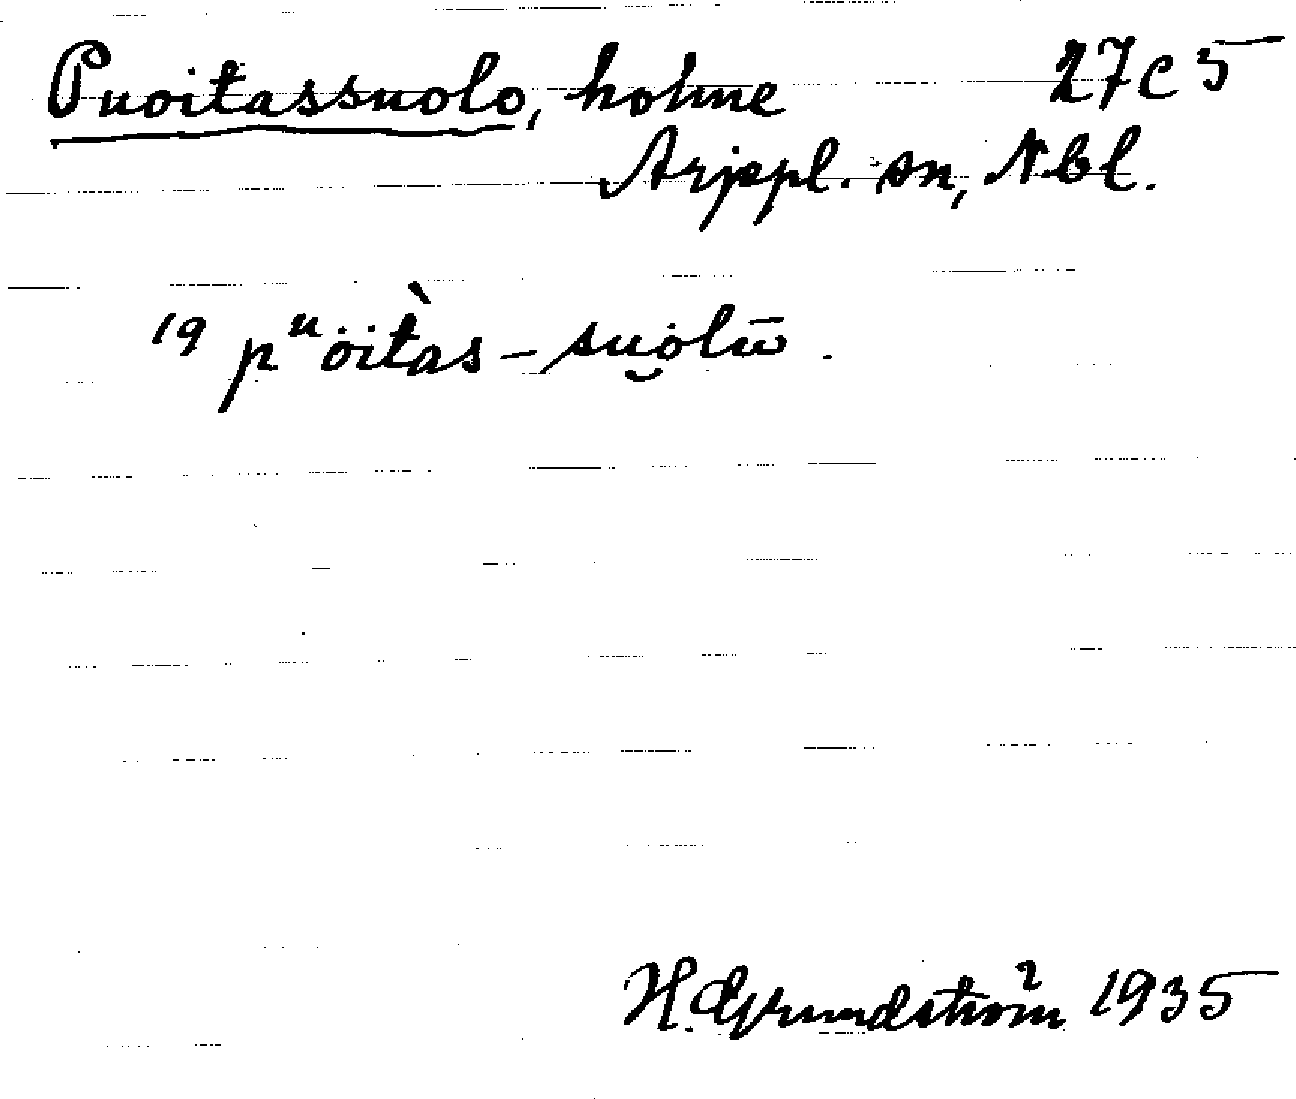 Puoitassuolo, holme 27C5
Arjepl. sn, Nbl.
19 pᵘȯitàs-suo̮lū.
H. Grundström 1935